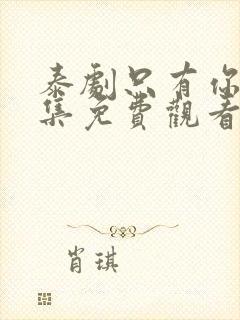 泰劇只有你
集免費觀看
肖琪